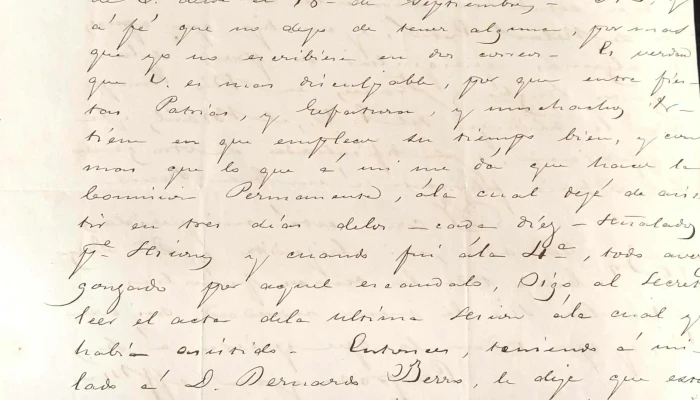 de V. desde el 18 de Septiembre
á fé que no dejo de tener alguna, por mas
que yo no escribiese en dos correos - Es verdad
que V. es mas disculpable, por que entre fies-
tas Patrias, y Gefatura, y muchachos &-
tiene en que emplear su tiempo bien, y con
mas que lo que á mi me dá que hacer la
Comision Permanente, ála cual dejé de asis-
tir en tres dias delos - cada diez - señalados
pª. Sesiones y cuando fui ála 4ª, todo aver
gonzado por aquel escandalo, Digo al Secret
leer el acta dela ultima sesion ála cual y
habia asistido - Entonces, teniendo á mi
lado á D. Bernardo Berro, le dije que est